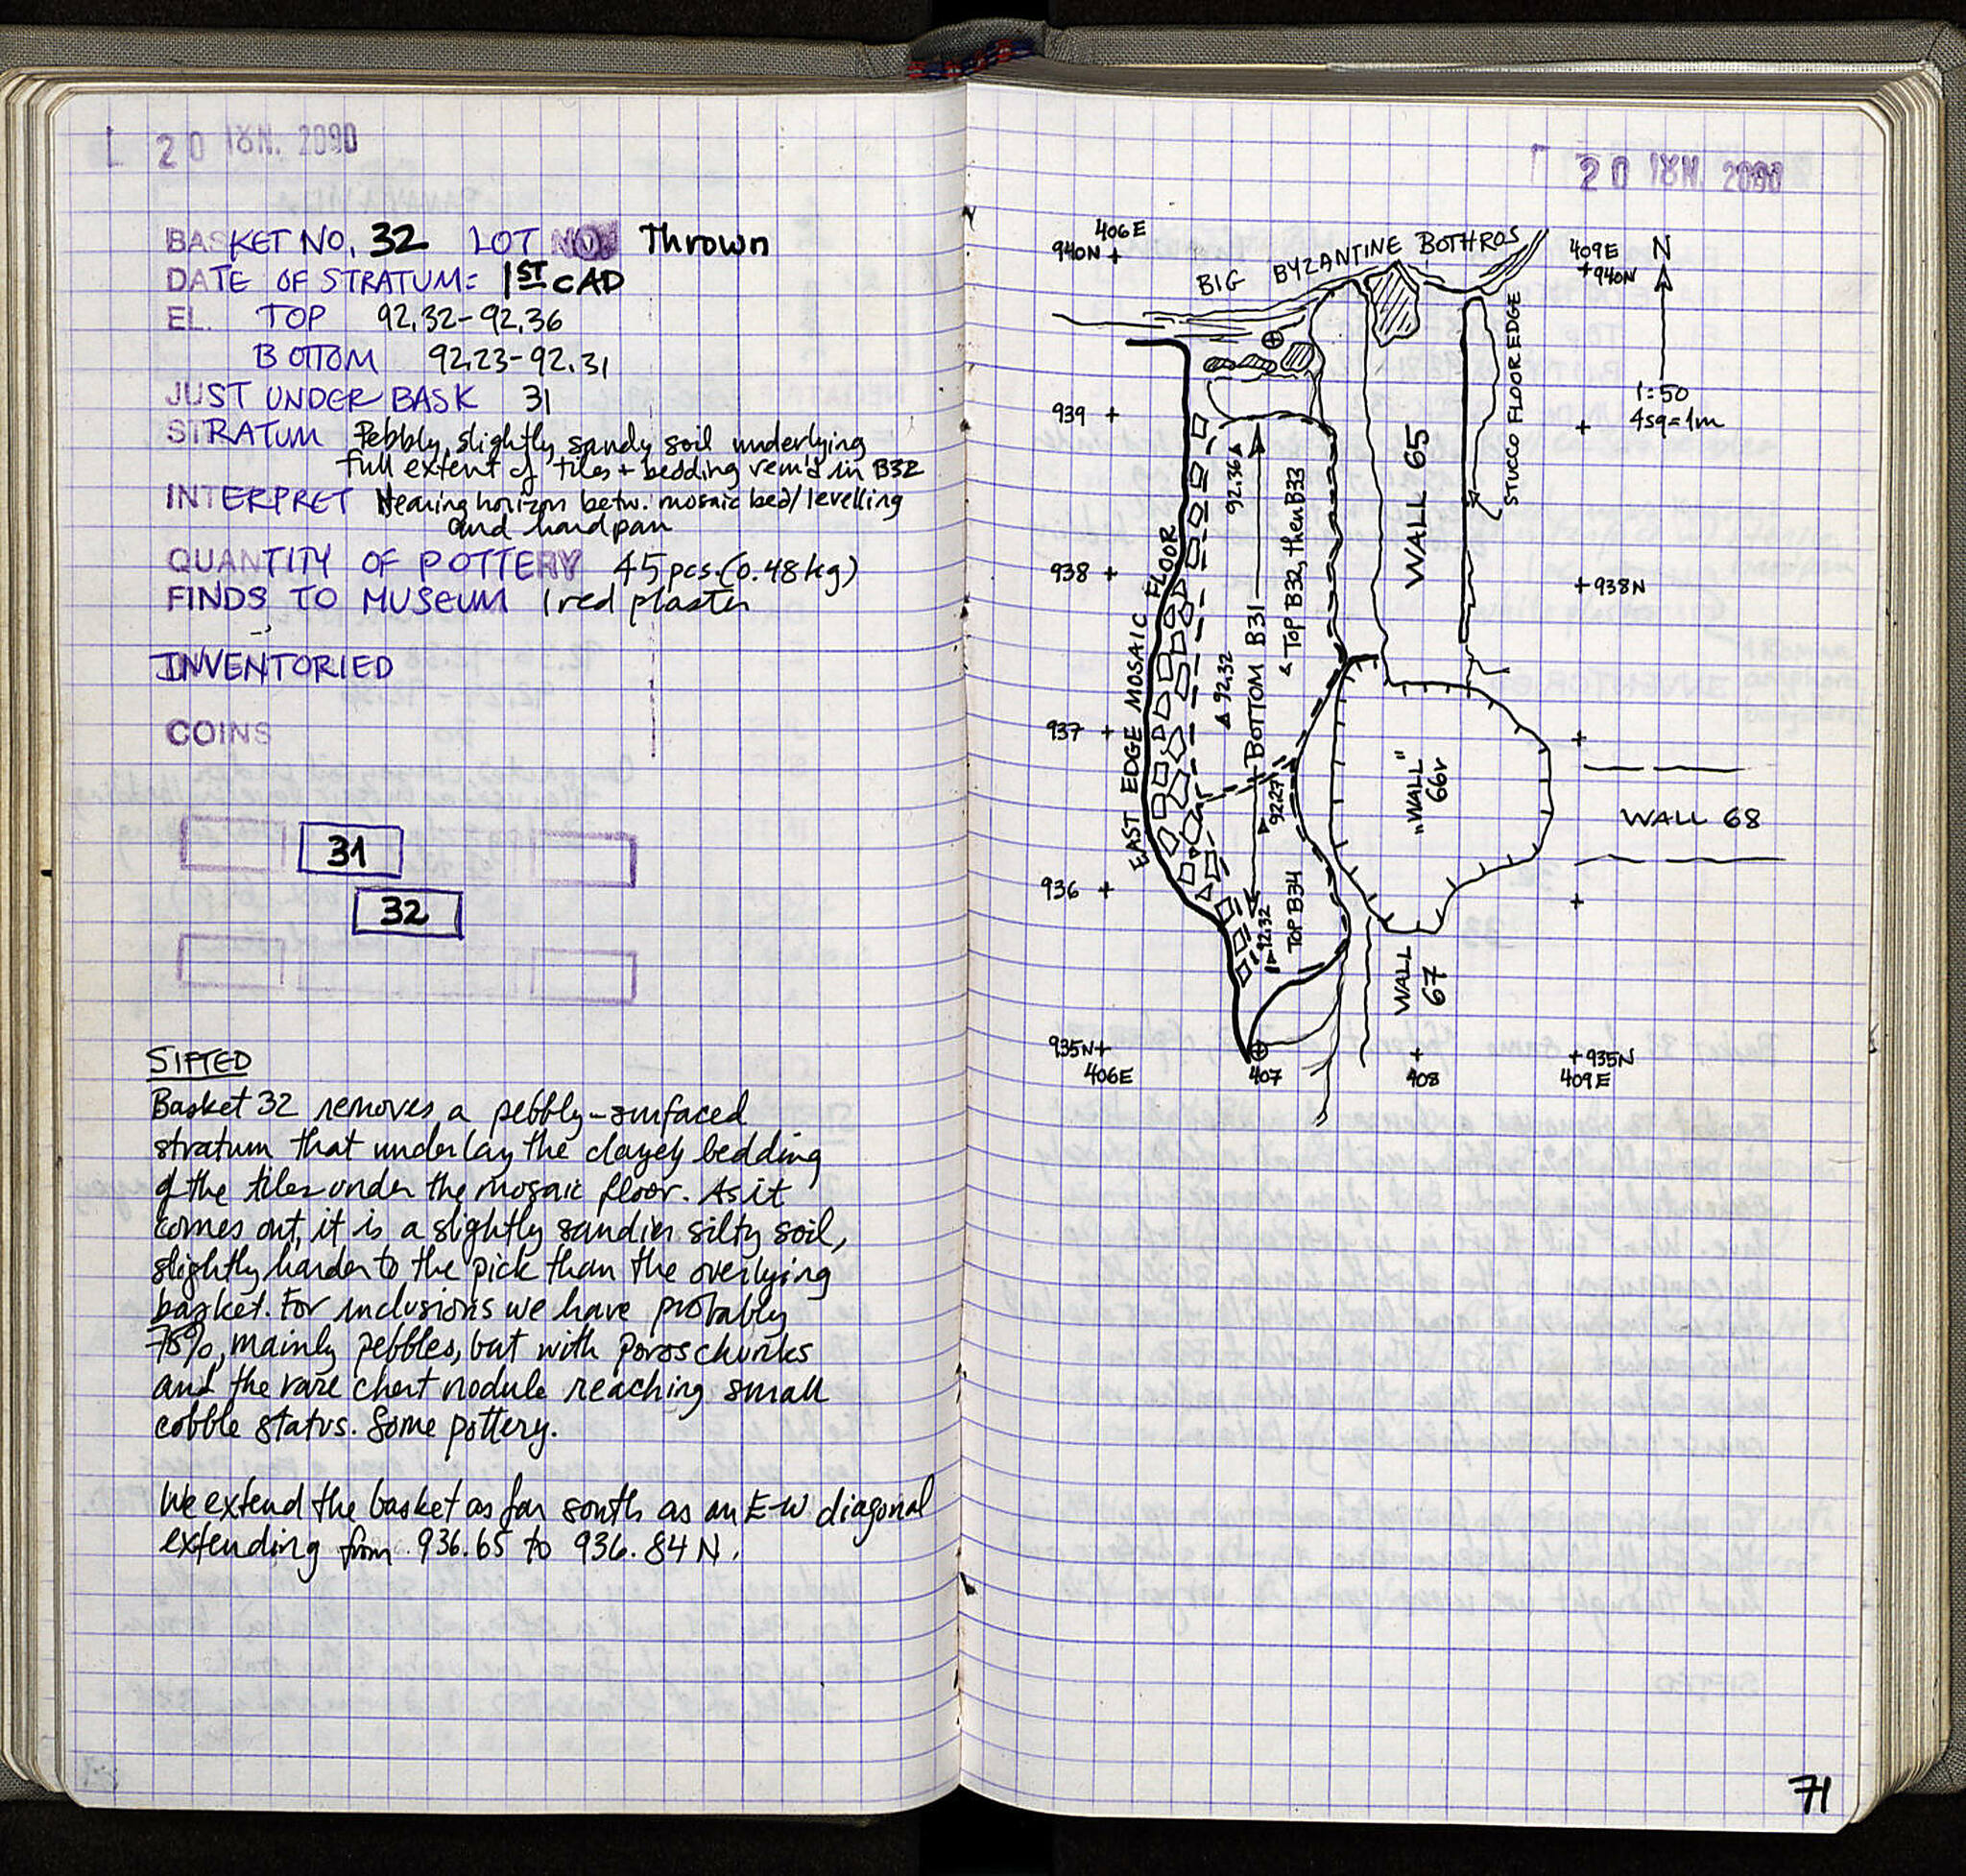 20 ΙΟΥΝ. 2090
BASKET NO. 32 LOT NO. Thrown
DATE OF STRATUM: 1ST CAD
EL. TOP 92.32-92.36
BOTTOM 92.23-92.31
JUST UNDER BASK 31
STRATUM Pebbly, slightly sandy soil underlying
full extent of tiles + bedding rem'd in B32
INTERPRET Nearing horizon betw. mosaic bed/levelling
and hardpan
QUANTITY OF POTTERY 45 pcs. (0.48kg)
FINDS TO MUSEUM 1 red plaster
INVENTORIED
COINS
31
32
SIFTED
Basket 32 removes a pebbly-surfaced
stratum that underlay the clayey bedding
of the tiles under the mosaic floor. As it
comes out, it is a slightly sandier silty soil,
slightly harder to the pick than the overlying
basket. For inclusions we have probably
75%, mainly pebbles, but with poros chunks
and the rare chert nodule reaching small
cobble status. Some pottery.
We extend the basket as far south as an E-W diagonal
extending from 936.65 to 936.84 N.
20 ΙΟΥΝ. 2090
406E
940N +
BIG BYZANTINE BOTHROS
409E
+940N
N
1:50
4sq=1m
STUCCO FLOOR EDGE
939 +
92.36
BOTTOM B31
& TOP B32, then B33
WALL 65
938 +
+938N
EAST EDGE MOSAIC FLOOR
92.32
937 +
92.27
"WALL"
66r
WALL 68
936 +
92.32
TOP B34
WALL
67
935N+
406E
407
408
+935N
409E
71